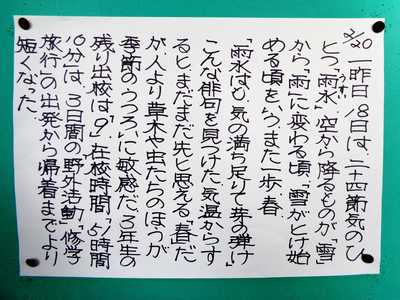 2/20 一昨日、18日は、二十四節気のひ
とつ「雨水」。空から降るものが、「雪」
うすい
から、「雨」に変わる頃、「雪」がとけ始
める頃を いう。また一歩、春。
「雨水はも 気の満ち足りて 芽の弾け」
こんな俳句を見つけた。気温からす
ると、まだまだ先と思える、「春」だ
が、人より草木や虫たちのほうが
季節のうつろいに敏感だ。3年生の
残り出校は、「9」。在校時間「51時間
10分」は、3日間の「野外活動」「修学
旅行」の出発から帰着までより
短くなった。